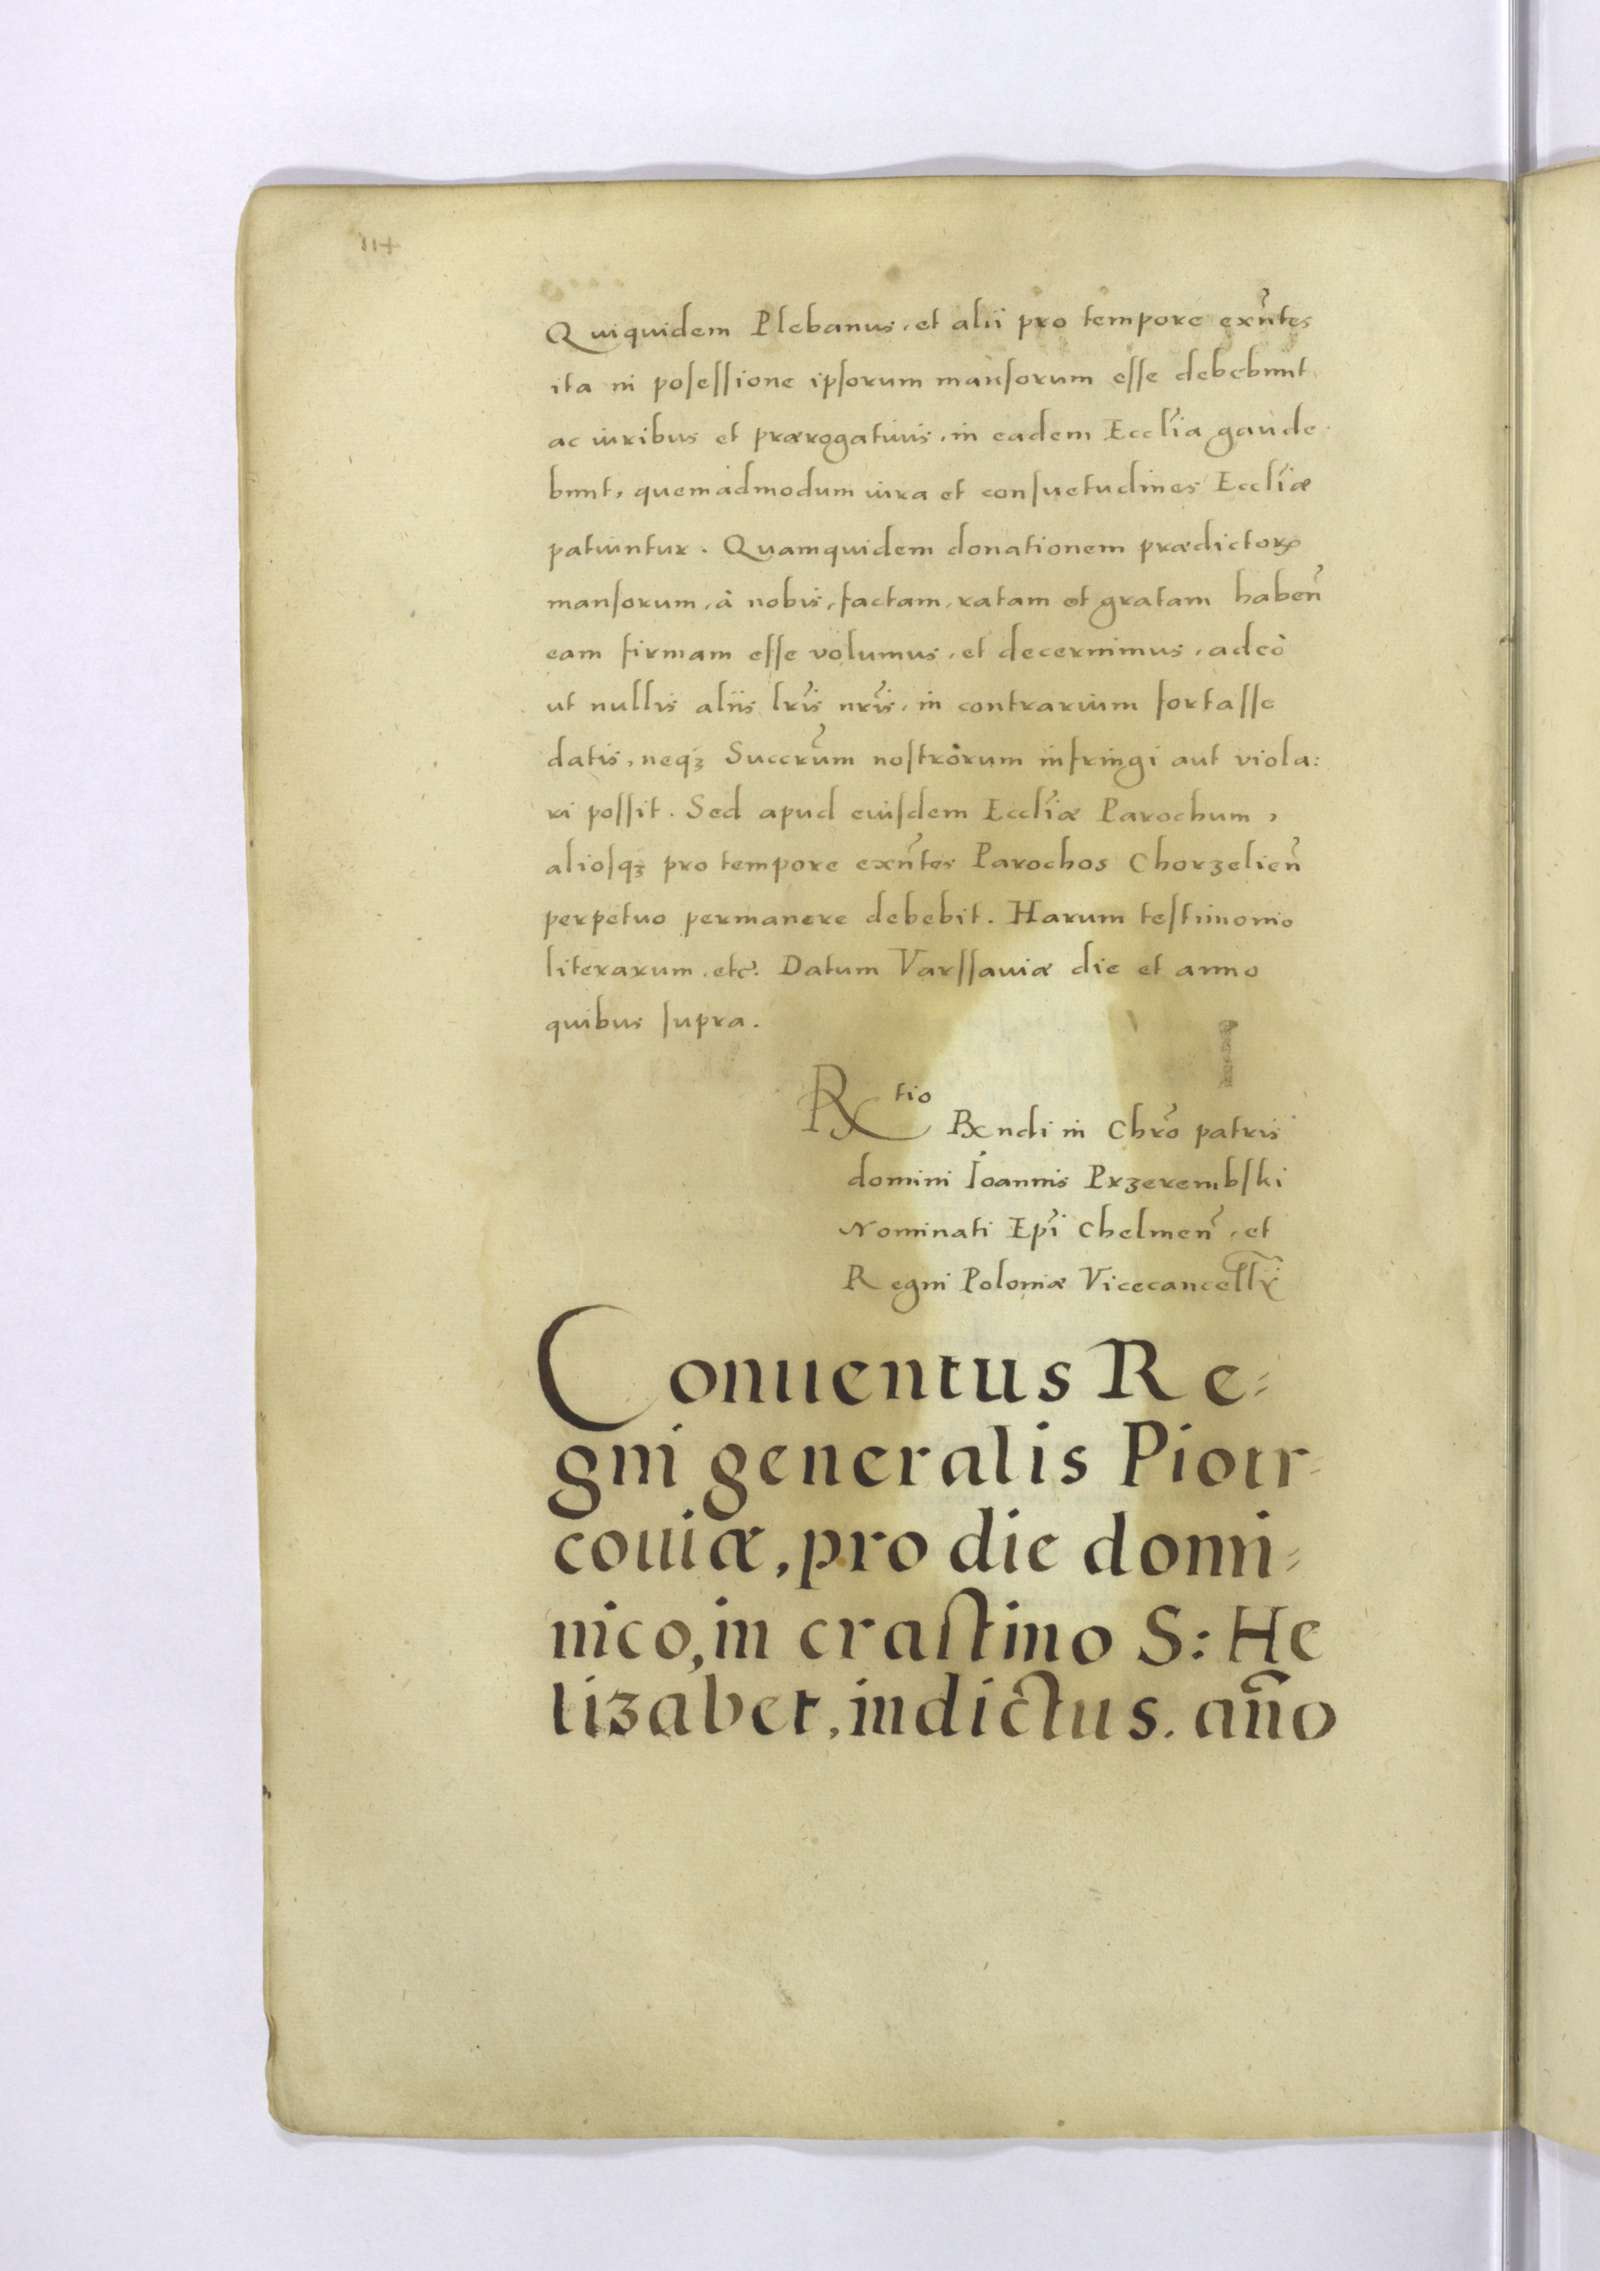 114
Quiquidem Plebanus, et alii pro tempore exñtes
ita in posessione ipsorum mansorum esse debebunt,
ac iuribus et prærogatiuis, in eadem Eccl'ia gaude
bunt, quemadmodum iura et consuetudines Eccl'iæ
patiuntur. Quamquidem donationem prædictorꝝ
mansorum, à nobis, factam, ratam et gratam habeñ
eam firmam esse volumus, et decernimus, adeò
ut nullis aliis lr̃is nr̃is, in contrarium fortasse
datis, neqꝫ Succr̃um nostrorum infringi aut viola:
ri possit. Sed apud eiusdem Eccl'iæ Parochum,
aliosqꝫ pro tempore exñtes Parochos Chorzelieñ
perpetuo permanere debebit. Harum testimonio
literarum. etc̃. Datum Varssauiæ die et anno
quibus supra.
Rtio
Rndi in Chr̃o patris
domini Ioannis Przerembski
Nominati Ep̃i Chelmeñ, et
Regni Poloniæ Vicecancellr̃
Conuentus Re-
gni generalis Piotr-
couiæ, pro die domi-
nico, in crastino S: He
lizabet, indictus. año